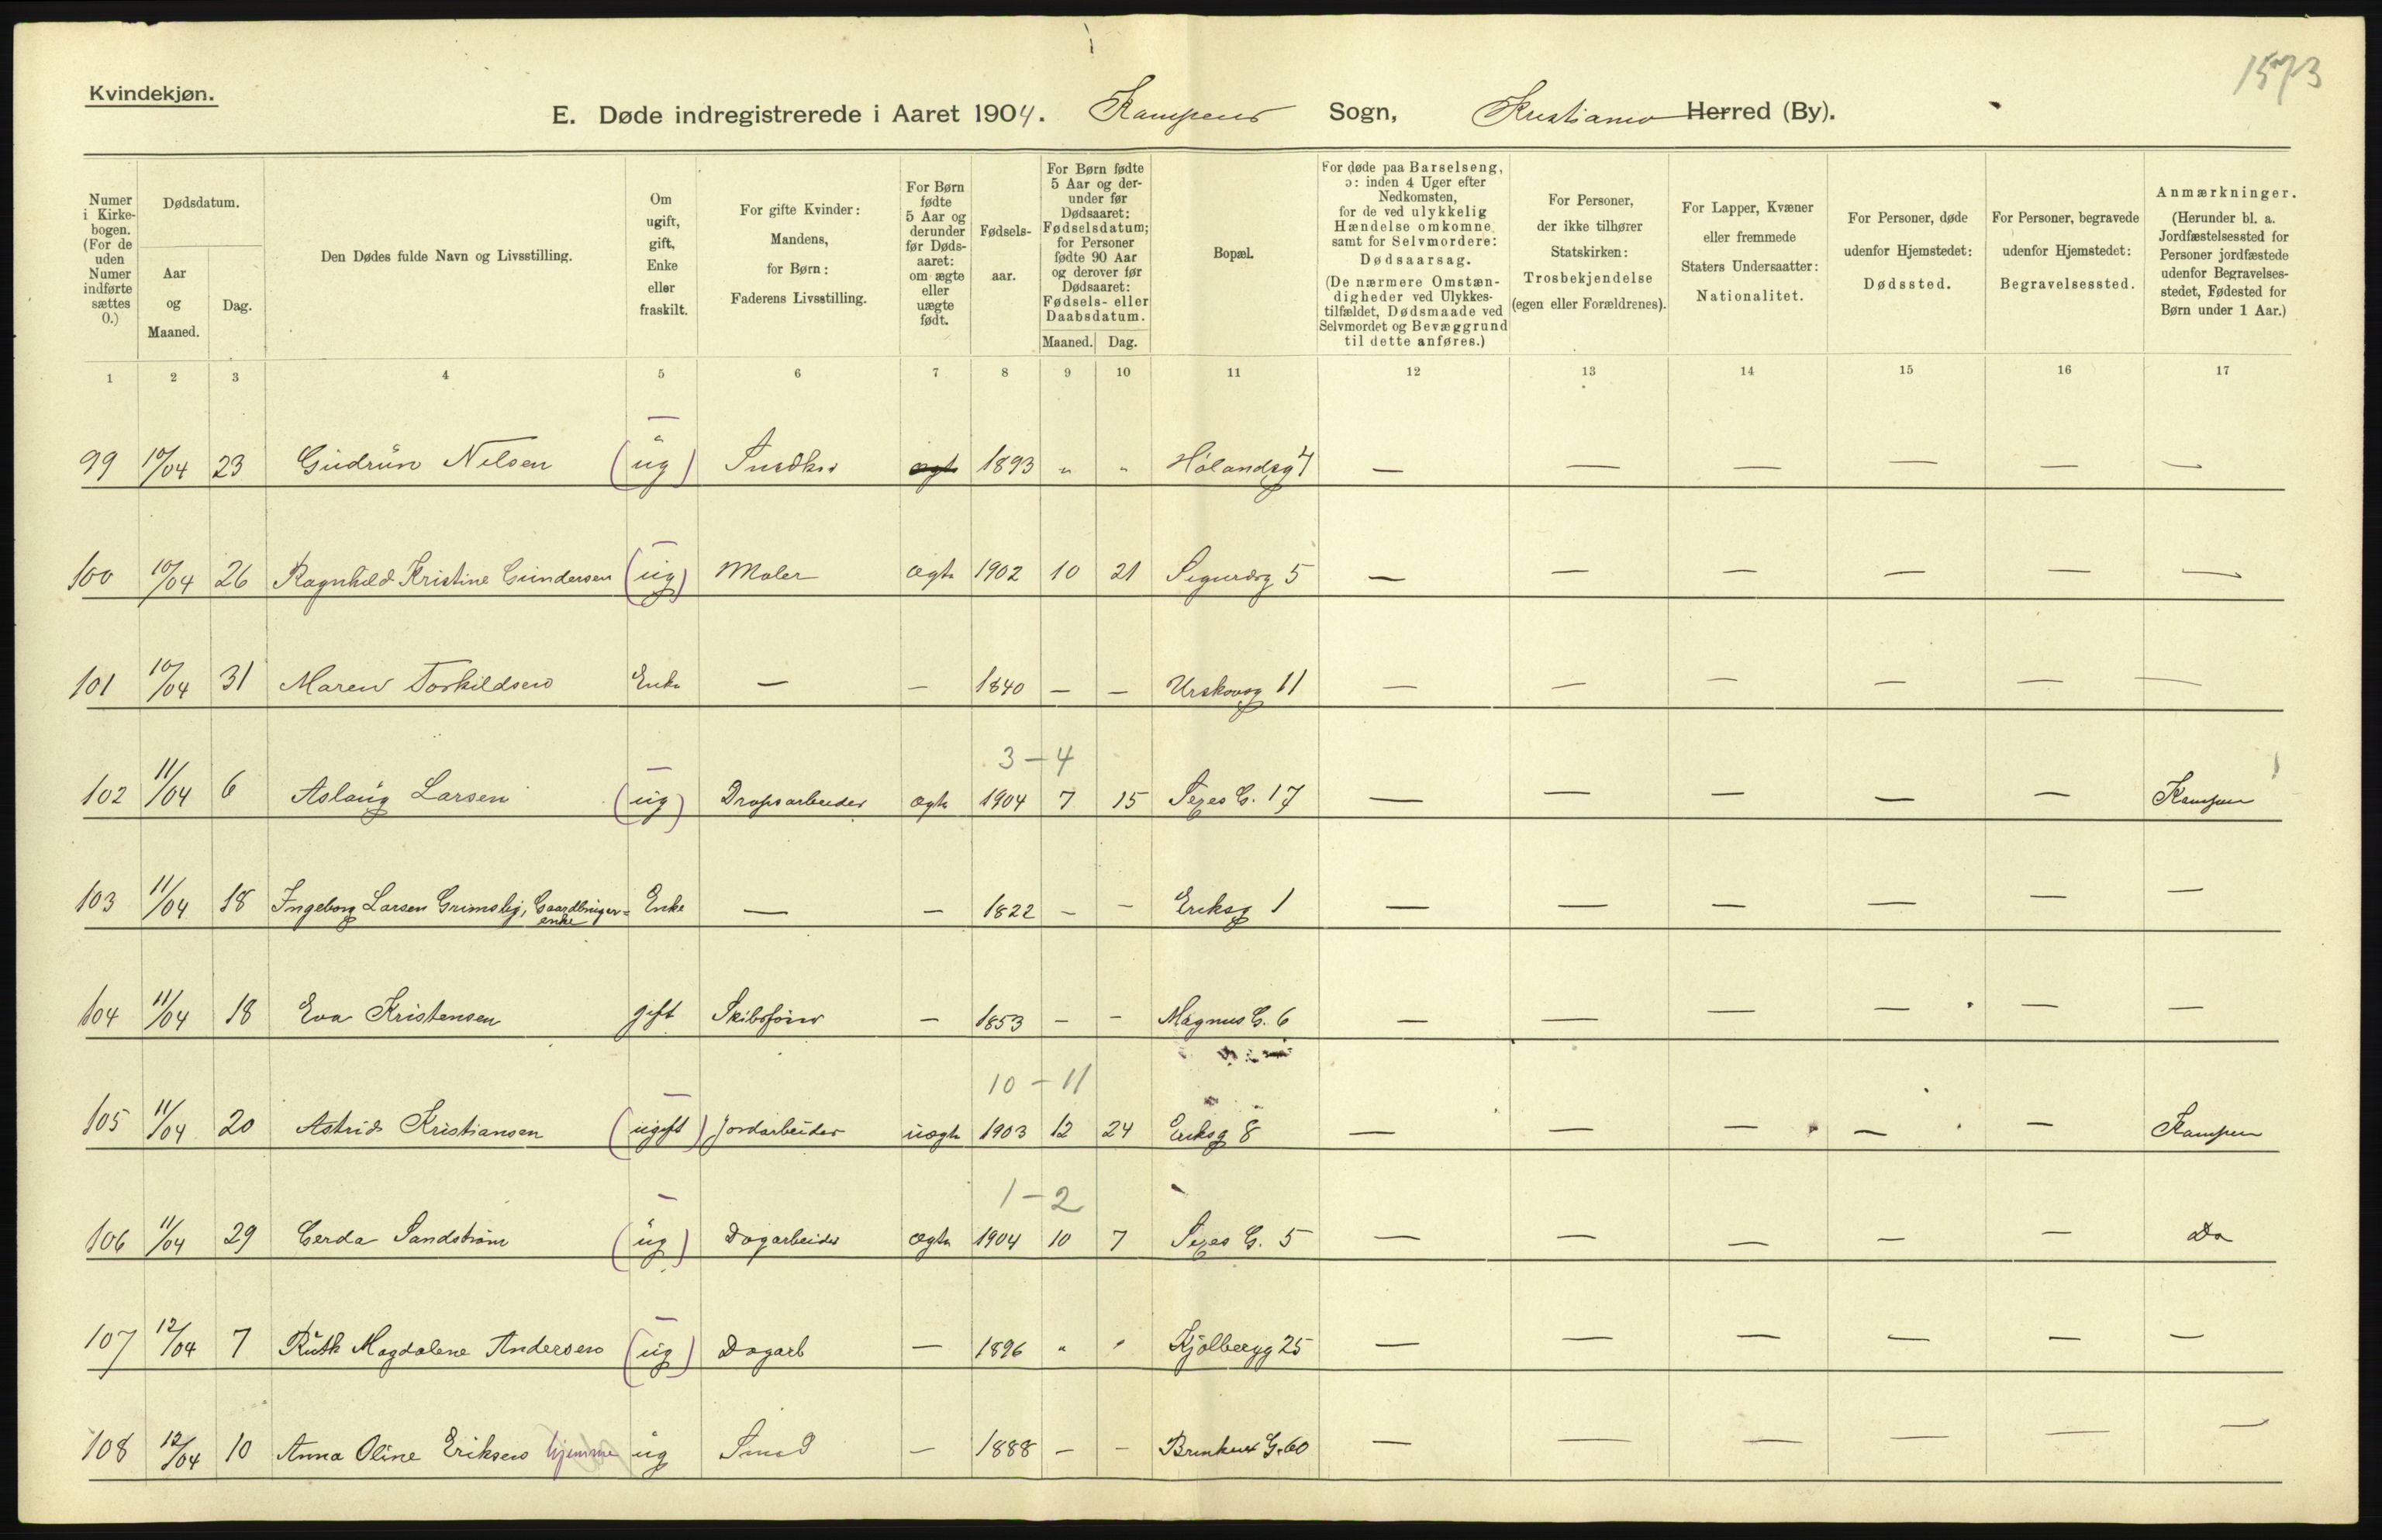 1573
Kvindekjøn.
E. Døde indregistrerede i Aaret 1904. Kampens Sogn, Kristiania Herred (By).
Numer i Kirkebogen. (For de uden Numer indførte sættes 0.)
Dødsdatum.
Aar og Maaned.
Dag.
Den Dødes fulde Navn og Livsstilling.
Om ugift, gift, Enke eller fraskilt.
For gifte Kvinder: Mandens, for Børn: Faderens Livsstilling.
For Børn fødte 5 Aar og derunder før Dødsaaret: om ægte eller uægte født.
Fødselsaar.
For Børn fødte 5 Aar og derunder før Dødsaaret: Fødselsdatum; for Personer fødte 90 Aar og derover før Dødsaaret: Fødsels- eller Daabsdatum.
Maaned. Dag.
Bopæl.
For døde paa Barselseng, ɔ: inden 4 Uger efter Nedkomsten, for de ved ulykkelig Hændelse omkomne samt for Selvmordere: Dødsaarsag. (De nærmere Omstændigheder ved Ulykkestilfældet, Dødsmaade ved Selvmordet og Bevæggrund til dette anføres.)
For Personer, der ikke tilhører Statskirken: Trosbekjendelse (egen eller Forældrenes).
For Lapper, Kvæner eller fremmede Staters Undersaatter: Nationalitet.
For Personer, døde udenfor Hjemstedet: Dødssted.
For Personer, begravede udenfor Hjemstedet: Begravelsessted.
Anmærkninger. (Herunder bl. a. Jordfæstelsessted for Personer jordfæstede udenfor Begravelsesstedet, Fødested for Børn under 1 Aar.)
1 2 3 4 5 6 7 8 9 10 11 12 13 14 15 16 17
99 10/04 23 Gudrun Nilsen (ug) Snedker ægte 1893 " " Hølandsg 4 — — — — — —
100 10/04 26 Ragnhild Kristine Gundersen (ug) Maler ægte 1902 10 21 Sigurdsg 5 — — — — — —
101 10/04 31 Maren Torkildsen Enke — — 1840 — — Urskovsg 11 — — — — — —
3 – 4
102 11/04 6 Aslaug Larsen (ug) Dropsarbeider ægte 1904 7 15 Sexes G. 17 — — — — — Kampen
103 11/04 18 Ingeborg Larsen Grimslij, Gaardbruger=enke Enke — — 1822 – – Eriksg 1 — — — — — —
104 11/04 18 Eva Kristensen gift Skibsfører — 1853 – – Magnus G. 6 — — — — — —
10 – 11
105 11/04 20 Astrid Kristiansen (ugift) Jordarbeider uægte 1903 12 24 Eriksg 8 — — — — — Kampen
1 – 2
106 11/04 29 Gerda Sandstrøm (ug) Dagarbeider ægte 1904 10 7 Sexes G. 5 — — — — — Do
107 12/04 7 Ruth Magdalene Andersen (ug) Dagarb — 1896 " " Kjølbergg 25 — — — — — —
108 12/04 10 Anna Oline Eriksen hjemme ug Smed — 1888 – – G. 60 — — — — — —